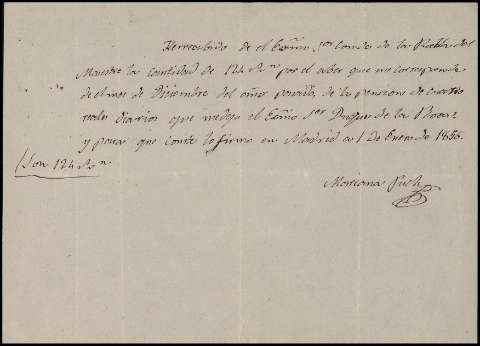 He recibido de el Exmo Sor Conde de la Puebla del
Maestre la cantidad de 124 Rn por el aber que me corresponde
de el mes de Diciembre del año pasado, de la pension de cuatro
reales diarios que me dejo el Exmo Sor Duque de la Roca
y para que conste lo firmo en Madrid a 1 de Enero de 185
Son 124 Rn
Mariana